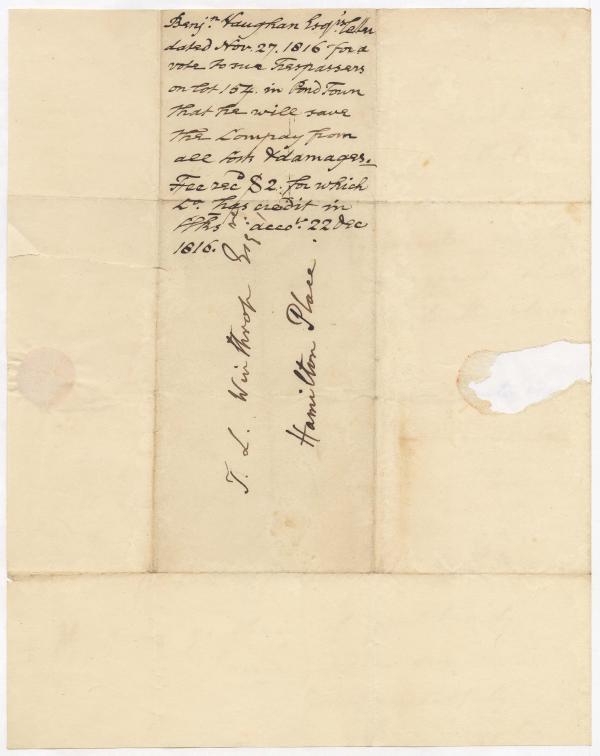 Benjn. Vaughan Esqrs letter
dated Nov. 27. 1816 for a
vote to sue Trespassers
on lot 154. in Pond Town
that he will save
the Compay from
all loss & damages.
Fee recd $2. for which
has credit in
acct. 22 Dec
1816.
T. L. Winthrop Esqr.
Hamilton Place.